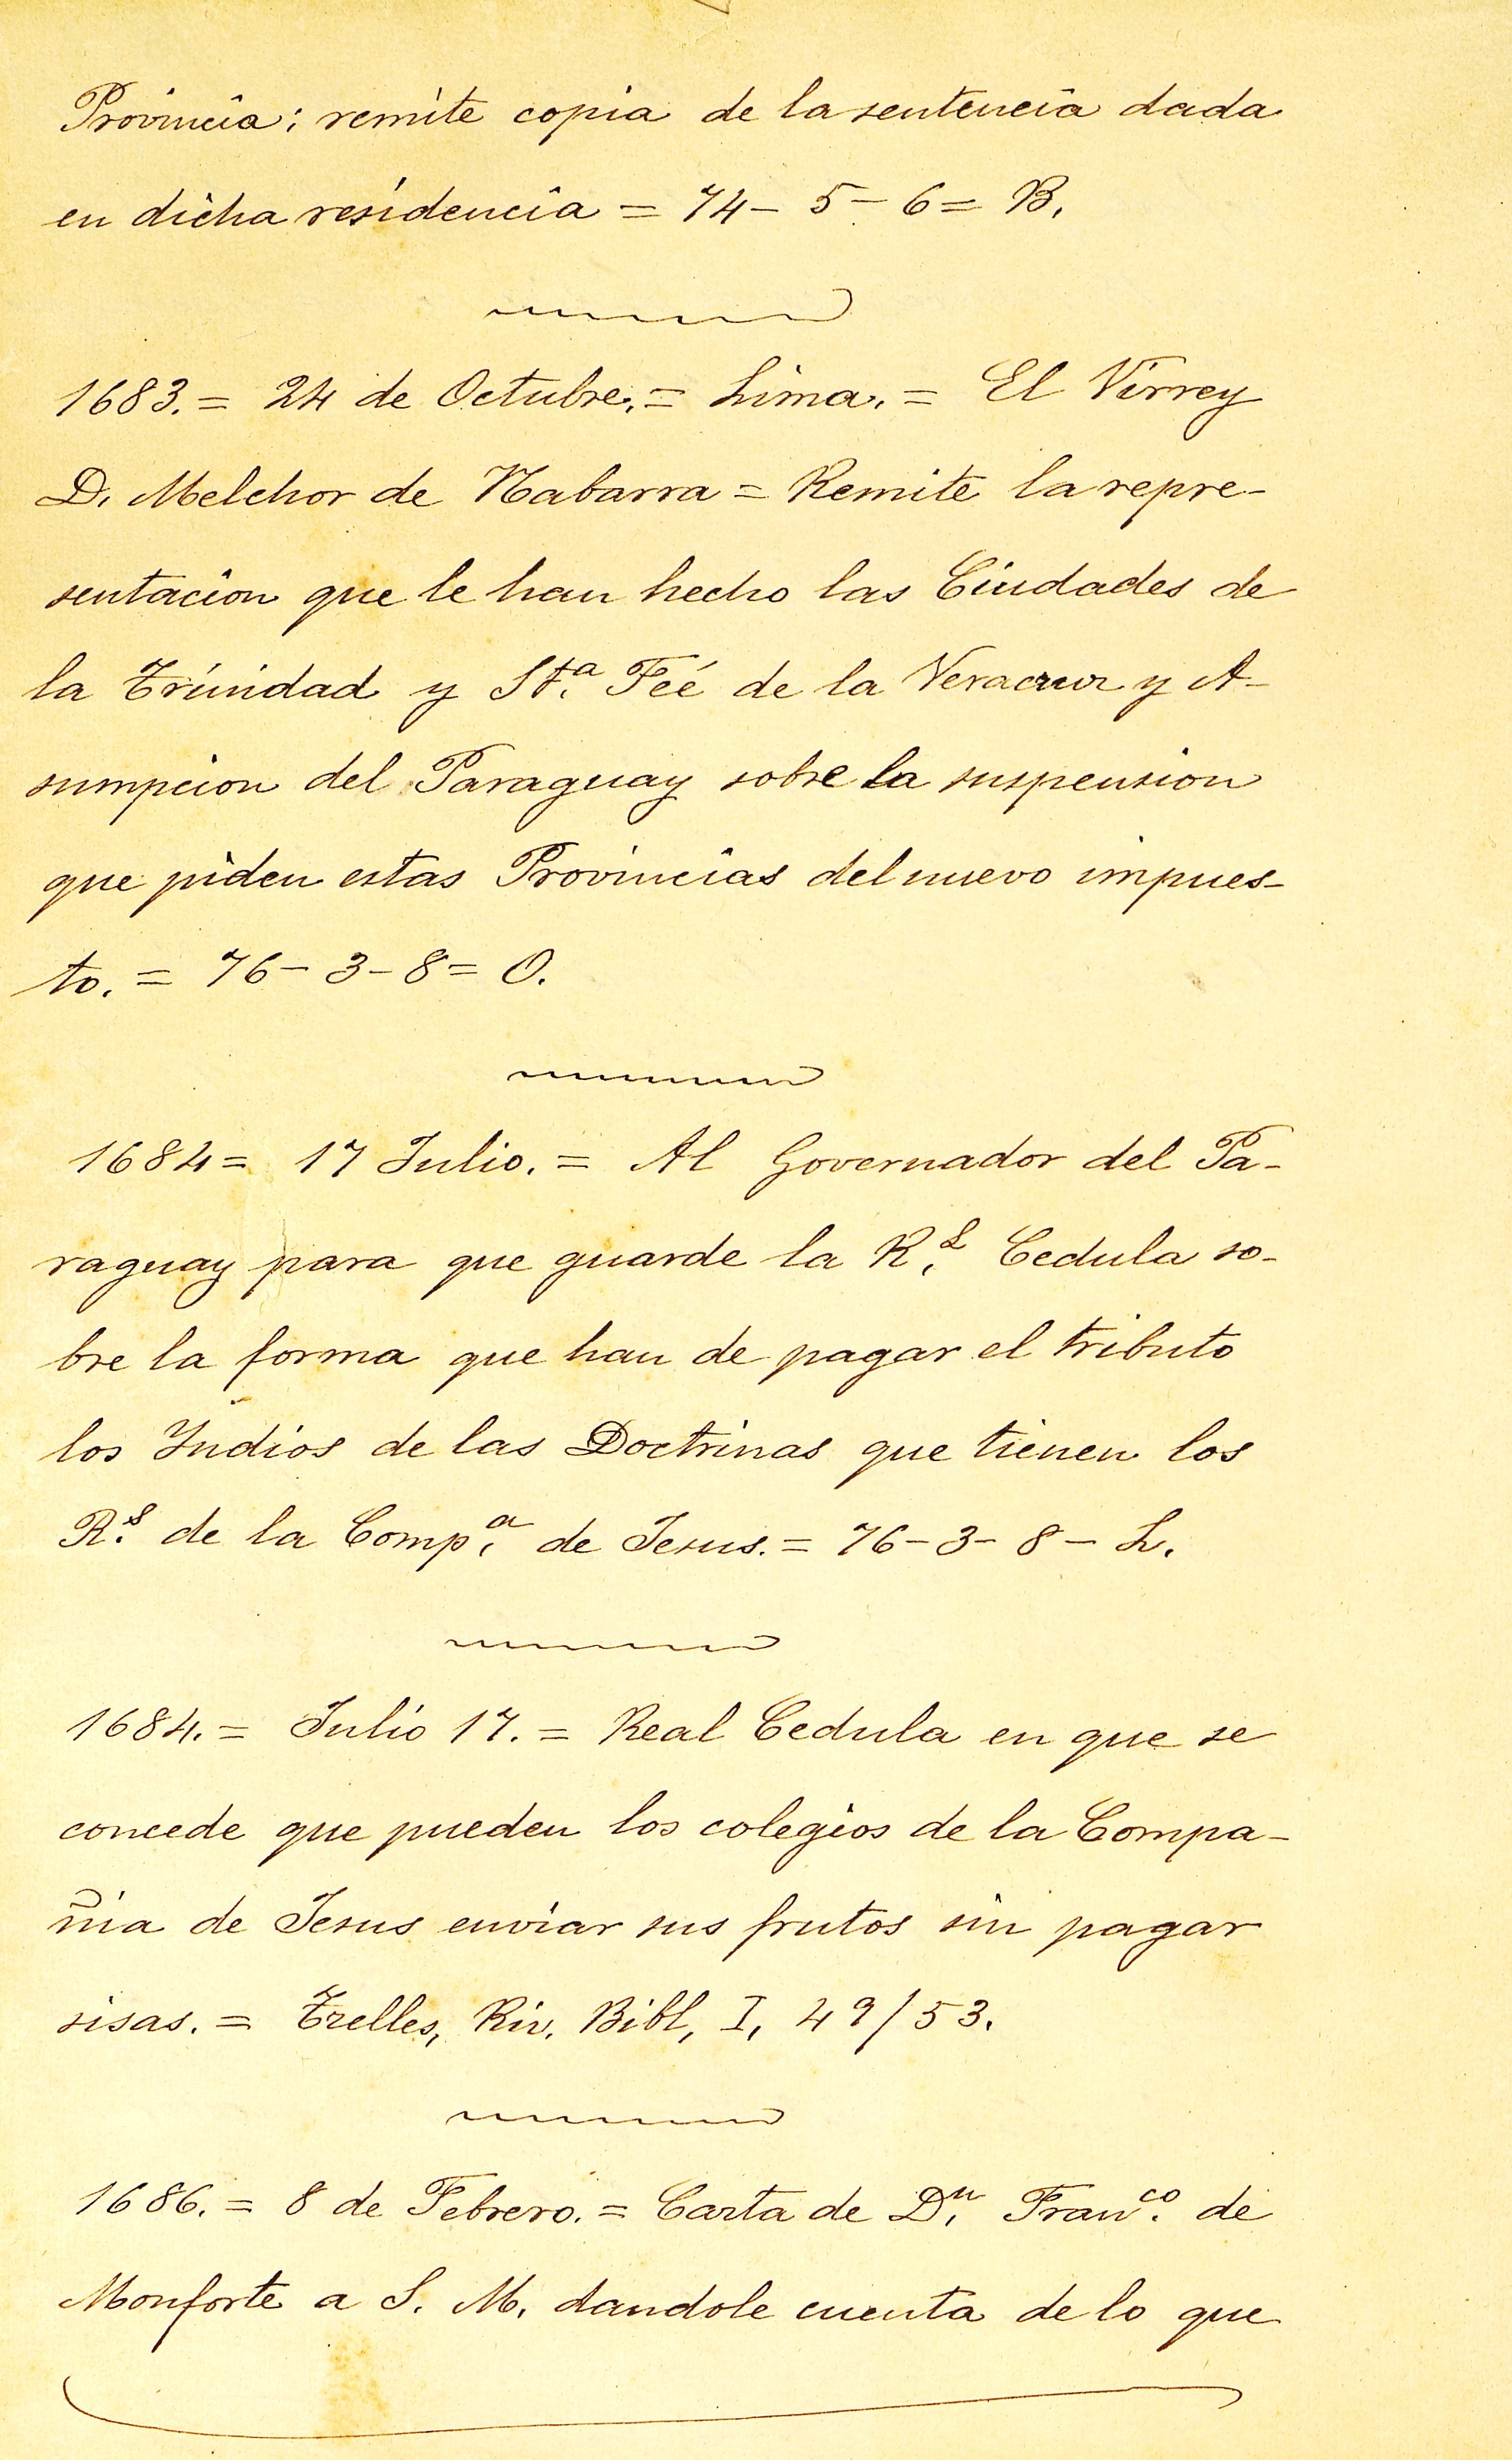 Provincia; remite copia de la sentencia dada
en dicha residencia = 74 - 5 - 6 = B.
1683. = 24 de Octubre. = Lima. = El Virrey
D. Melchor de Nabarra = Remite la repre-
sentacion que le han hecho las Ciudades de
la Trinidad y St.ª Feé de la Veracruz y A-
sumpcion del Paraguay sobre la suspension
que piden estas Provincias del nuevo impues-
to. = 76 - 3 - 8 = O.
1684 = 17 Julio. = Al Governador del Pa-
raguay para que guarde la R.l Cedula so-
bre la forma que han de pagar el tributo
los Indios de las Doctrinas que tienen los
R.s de la Comp.a de Jesus. = 76 - 3 - 8 - L.
1684. = Julio 17. = Real Cedula en que se
concede que pueden los colegios de la Compa-
ñia de Jesus enviar sus frutos sin pagar
sisas. = Trelles, Riv. Bibl, I, 49/53.
1686. = 8 de Febrero. = Carta de D.n Fran.co de
Monforte a S. M. dandole cuenta de lo que